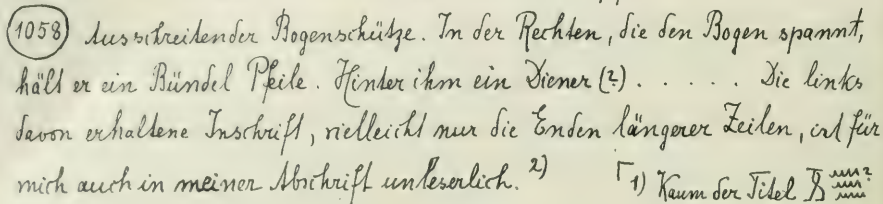 1058 Ausschreitender Bogenschütze. In der Rechten, die den Bogen spannt,
hält er ein Bündel Pfeile. Hinter ihm ein Diener (?) . . . . . Die links
davon erhaltene Inschrift, vielleicht nur die Enden längerer Zeilen, ist für
mich auch in meiner Abschrift unleserlich. 2) ⌈1) Kaum der Titel